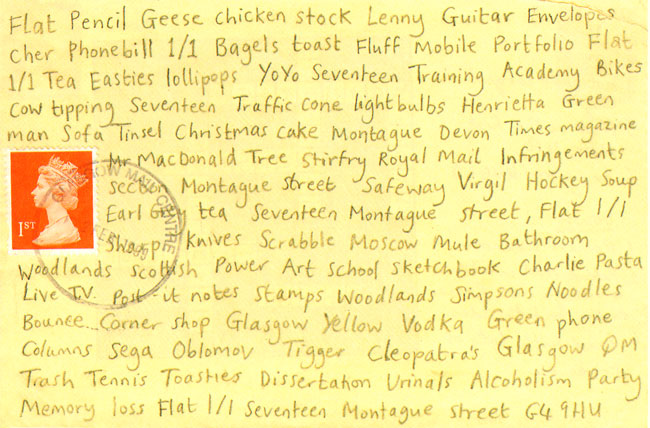 Flat Pencil Geese chicken stock Lenny Guitar Envelopes
Cher Phonebill 1/1 Bagels toast Fluff Mobile Portfolio Flat
1/1 Tea Easties lollipops YoYo Seventeen Training Academy Bikes
Cow tipping Seventeen Traffic cone lightbulbs Henrietta Green
man Sofa Tinsel Christmas cake Montague Devon Times magazine
Mr MacDonald Tree Stirfry Royal Mail Infringements
section Montague street Safeway Virgil Hockey Soup
Earl Grey tea Seventeen Montague street, Flat 1/1
Sharp knives Scrabble Moscow Mule Bathroom
Woodlands Scottish Power Art school sketchbook Charlie Pasta
Live T.V. Post-it notes Stamps Woodlands Simpsons Noodles
Bounce... Corner shop Glasgow Yellow Vodka Green phone
Columns Sega Oblomov Tigger Cleopatra's Glasgow QM
Trash Tennis Toasties Dissertation Urinals Alcoholism Party
Memory loss Flat 1/1 Seventeen Montague street G4 9HU
1ST
GLASGOW MAIL CENTRE